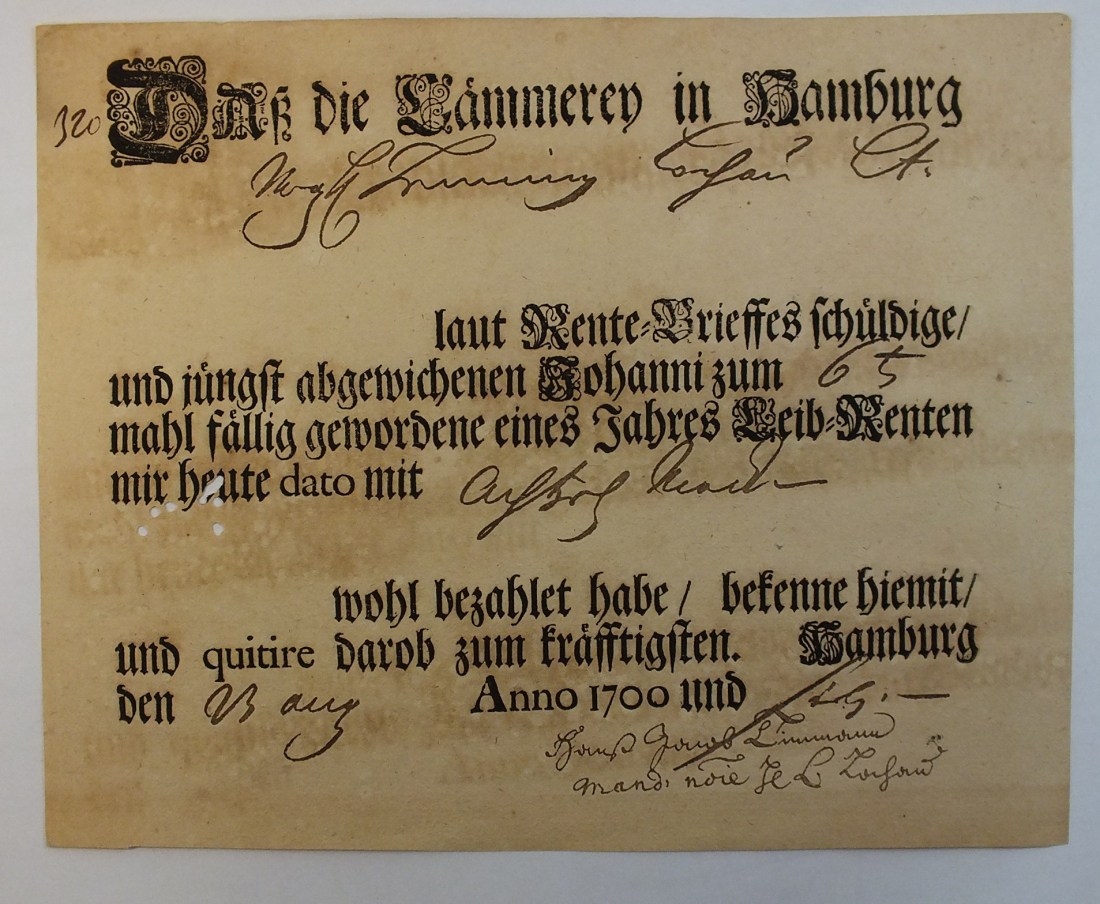 320 DAß die Cämmerey in Hamburg
laut Rente-Brieffes schüldige/
und jüngst abgewichenen Johanni zum 65
mahl fällig gewordene eines Jahres Leib-Renten
mir heute dato mit Achtzig Marck
wohl bezahlet habe / bekenne hiemit/
und quitire darob zum kräfftigsten. Hamburg
den 23 aug Anno 1700 und
Hanß Jacob Timmann
mand: noie